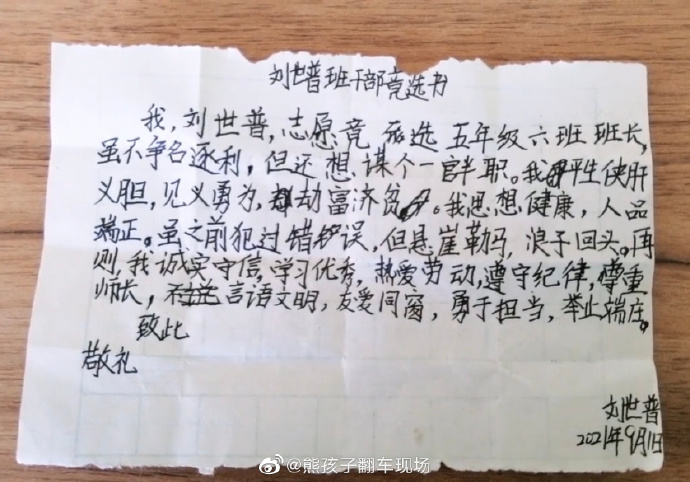 刘世普班干部竞选书
我,刘世普,志愿竞选五年级六班班长,
虽不争名逐利,但还想谋个一官半职。我平生侠肝
义胆,见义勇为,劫富济贫。我思想健康,人品
端正。虽之前犯过错误,但悬崖勒马,浪子回头。再
则,我诚实守信,学习优秀,热爱劳动,遵守纪律,尊重
师长,言语文明,友爱同窗,勇于担当,举止端庄。
致此
敬礼
刘世普
2021年9月1日
@熊孩子翻车现场